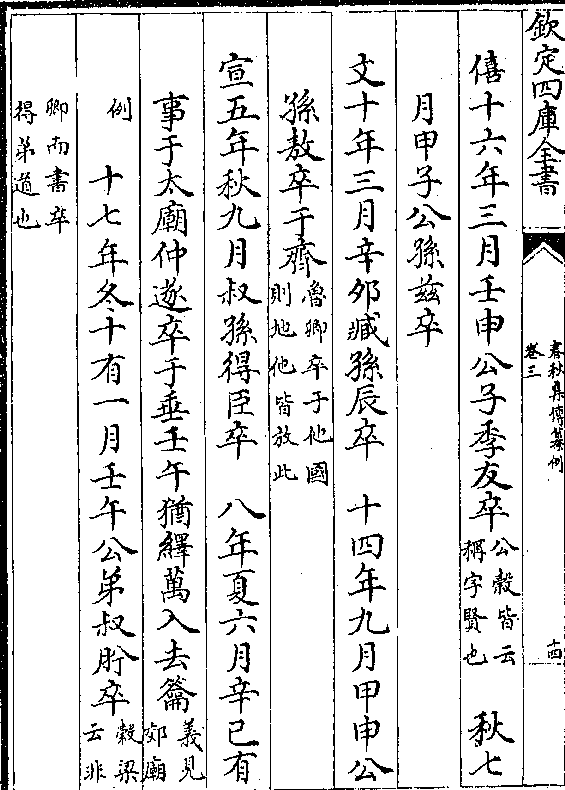 欽定四庫全書
春秋集傳纂例
卷三
十四
僖十六年三月壬申公子季友卒公穀皆云稱字賢也　秋七
月甲子公孫茲卒
文十年三月辛卯臧孫辰卒　十四年九月甲申公
孫敖卒于齊魯卿卒于他國則地他皆放此
宣五年秋九月叔孫得臣卒　八年夏六月辛巳有
事于太廟仲遂卒于垂壬午猶繹萬入去籥義見郊廟
例　十七年冬十有一月壬午公弟叔肹卒穀梁云非
卿而書卒得弟道也